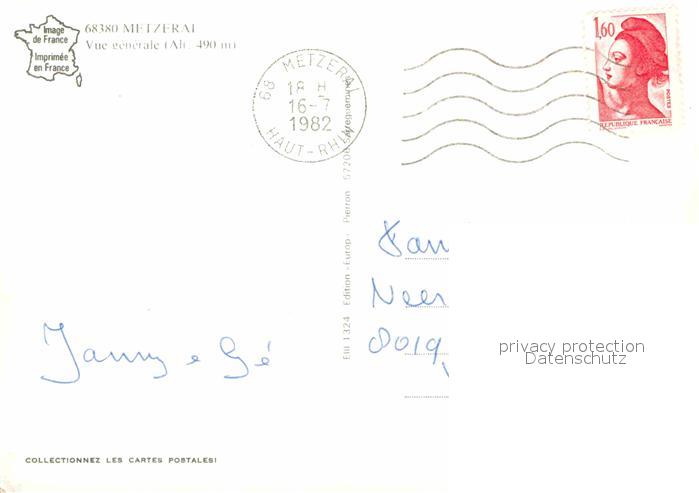 Image
de France
Imprimée
en France
68380 METZERAL
Vue générale (Alt. 490 m)
68 METZERAL
18 H
16-7
1982
HAUT-RHIN
1,60
POSTES
REPUBLIQUE FRANÇAISE
1324 Edition - Europ - Pierron 57206
Fam
Neer
8019
Janny e Gé
privacy protection
Datenschutz
COLLECTIONNEZ LES CARTES POSTALES!